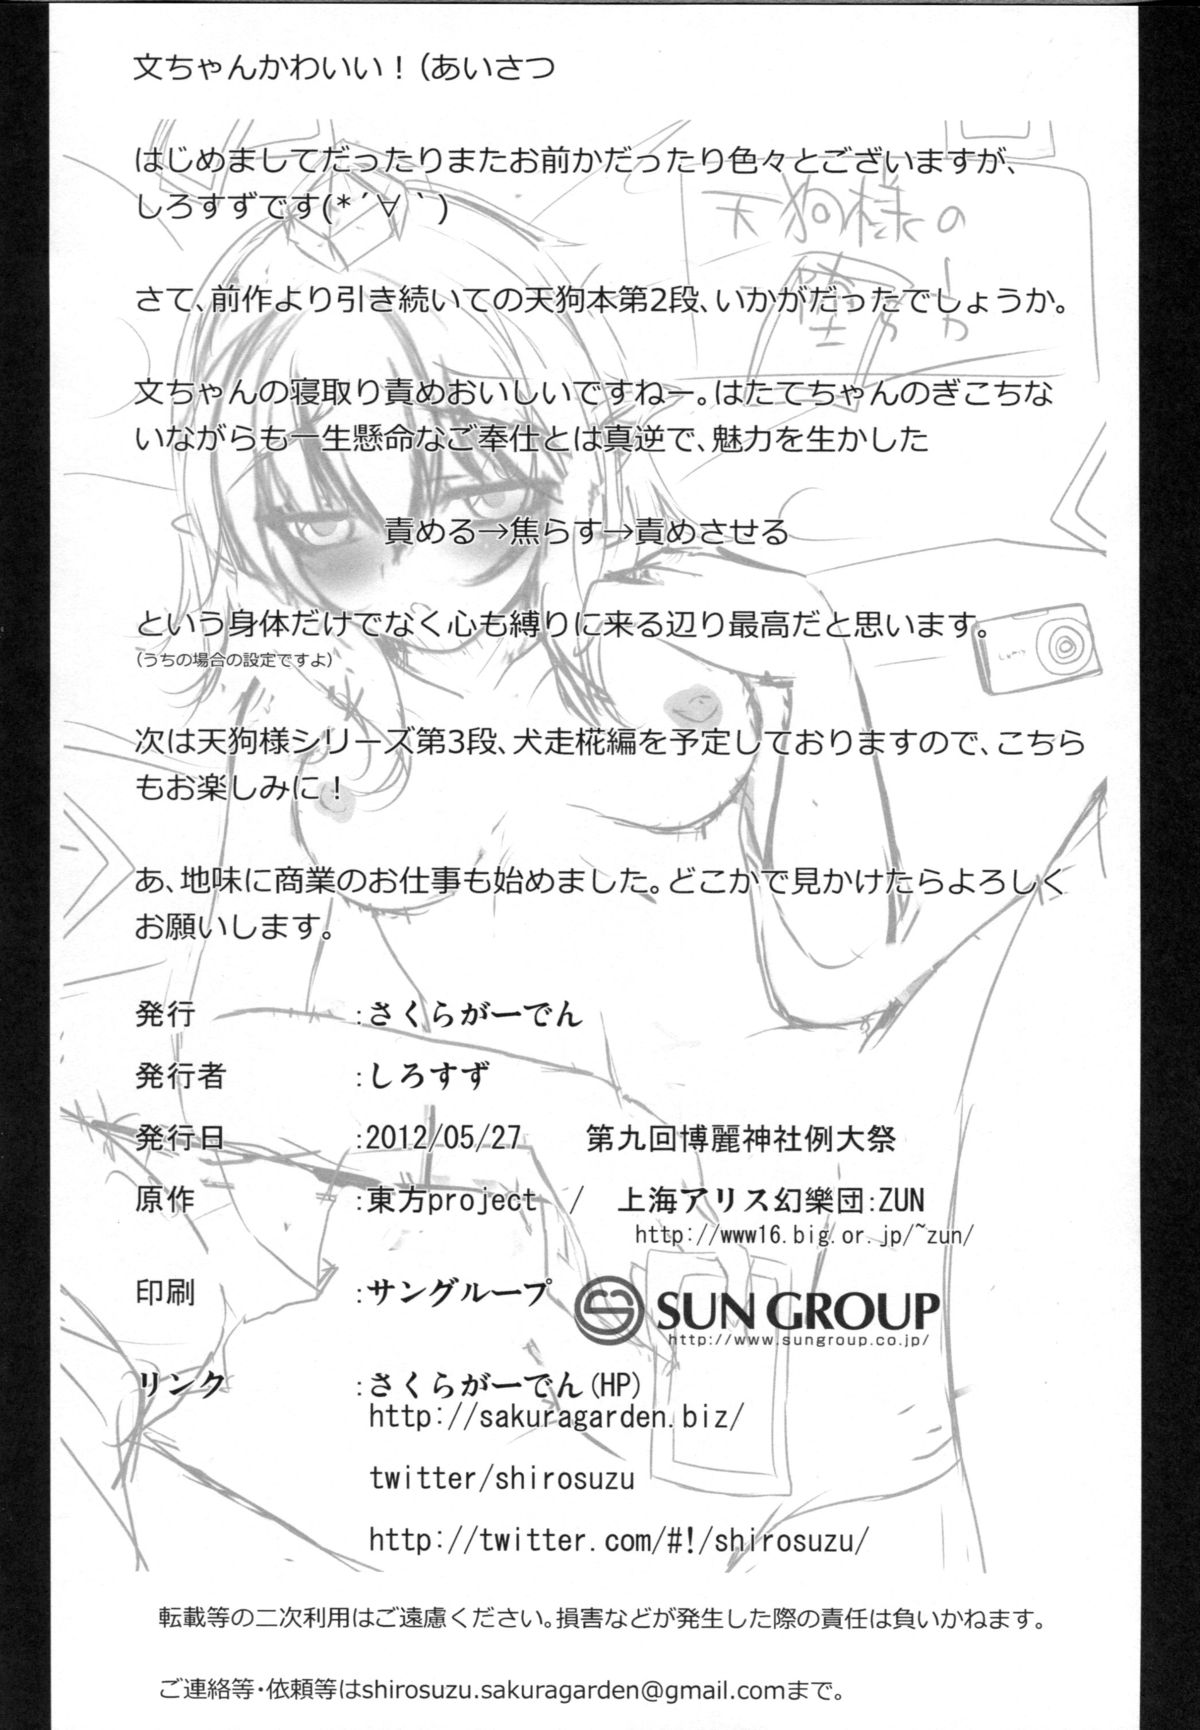 文ちゃんかわいい！（あいさつ
はじめましてだったりまたお前かだったり色々とございますが、
しろすずです(*´∀｀)
天狗様の
さて、前作より引き続いての天狗本第2段、いかがだったでしょうか。
文ちゃんの寝取り責めおいしいですねー。はたてちゃんのぎこちな
いながらも一生懸命なご奉仕とは真逆で、魅力を生かした
責める→焦らす→責めさせる
という身体だけでなく心も縛りに来る辺り最高だと思います。
（うちの場合の設定ですよ）
次は天狗様シリーズ第3段、犬走椛編を予定しておりますので、こちら
もお楽しみに！
あ、地味に商業のお仕事も始めました。どこかで見かけたらよろしく
お願いします。
発行 :さくらがーでん
発行者 :しろすず
発行日 :2012/05/27 第九回博麗神社例大祭
原作 :東方project / 上海アリス幻樂団:ZUN
http://www16.big.or.jp/~zun/
印刷 :サングループ SUN GROUP
http://www.sungroup.co.jp/
リンク :さくらがーでん(HP)
http://sakuragarden.biz/
twitter/shirosuzu
http://twitter.com/#!/shirosuzu/
転載等の二次利用はご遠慮ください。損害などが発生した際の責任は負いかねます。
ご連絡等・依頼等はshirosuzu.sakuragarden@gmail.comまで。